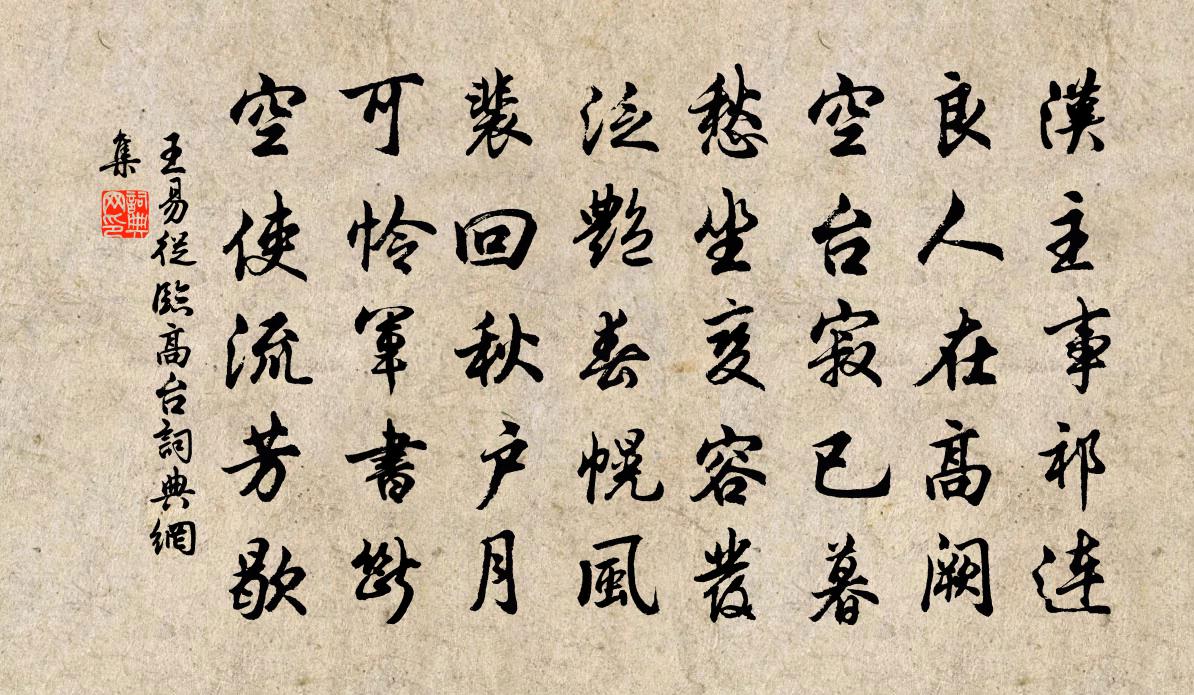 漢主事祁連
良人在高闕
空台寂已暮
愁坐变容發
泛艷春幌風
裴回秋户月
可怜軍書斷
空使流芳歇
王易從臨高台詞典網
集
詞典
网印